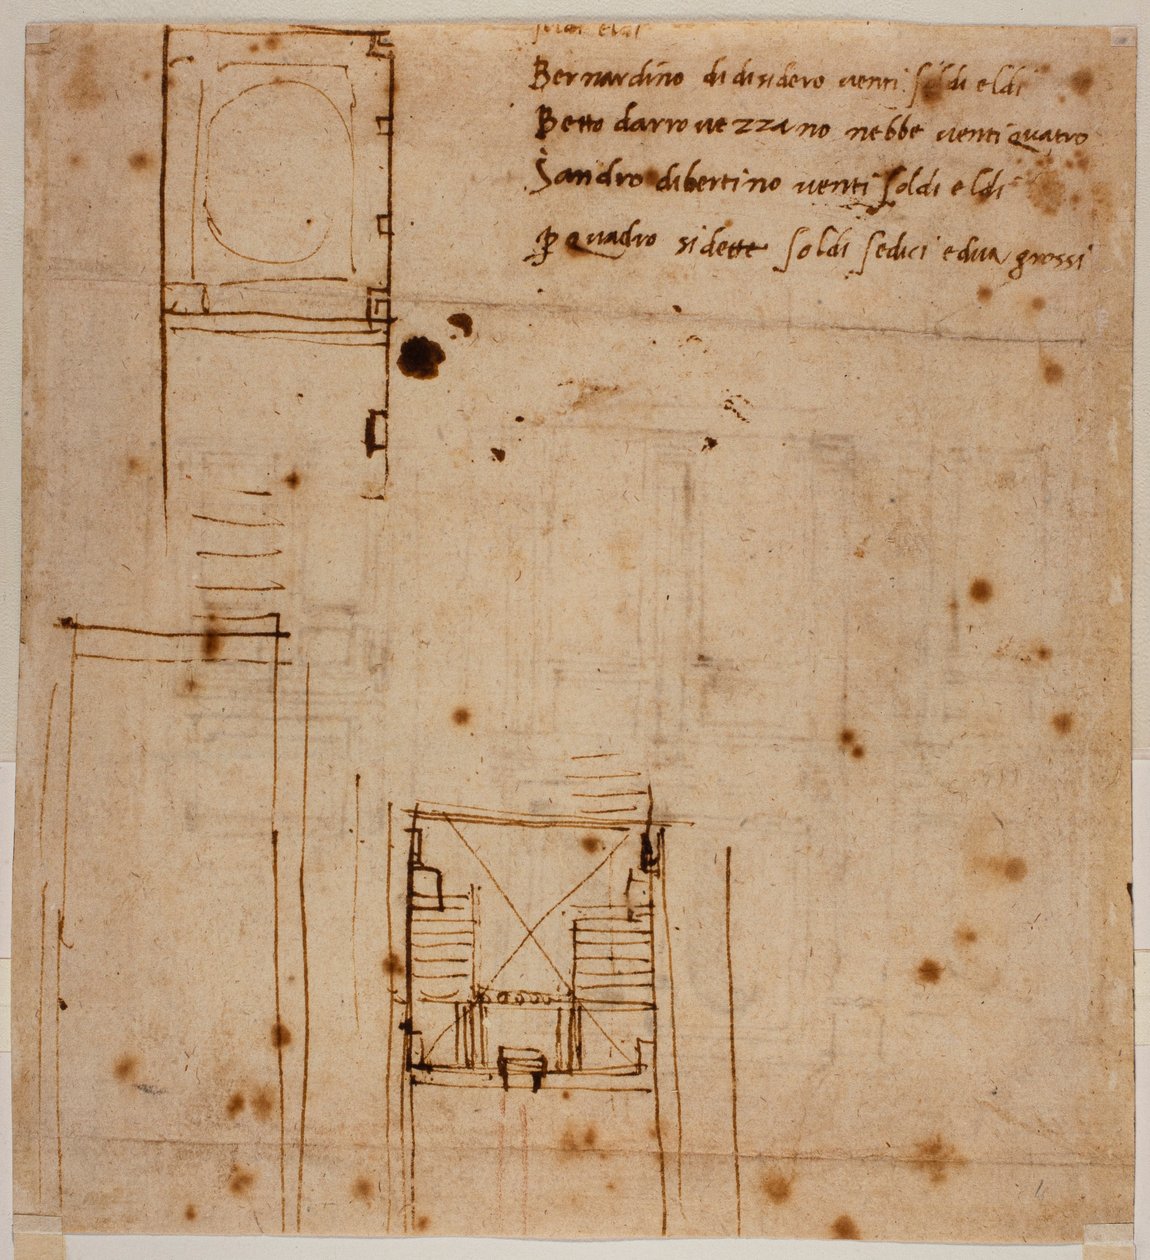 eldi
Bernardino di disidero venti soldi eldi
Betto darrovezzano nebbe venti quatro
Sandro dibertino venti soldi eldi
P Quadro sidette soldi sedici edua grossi